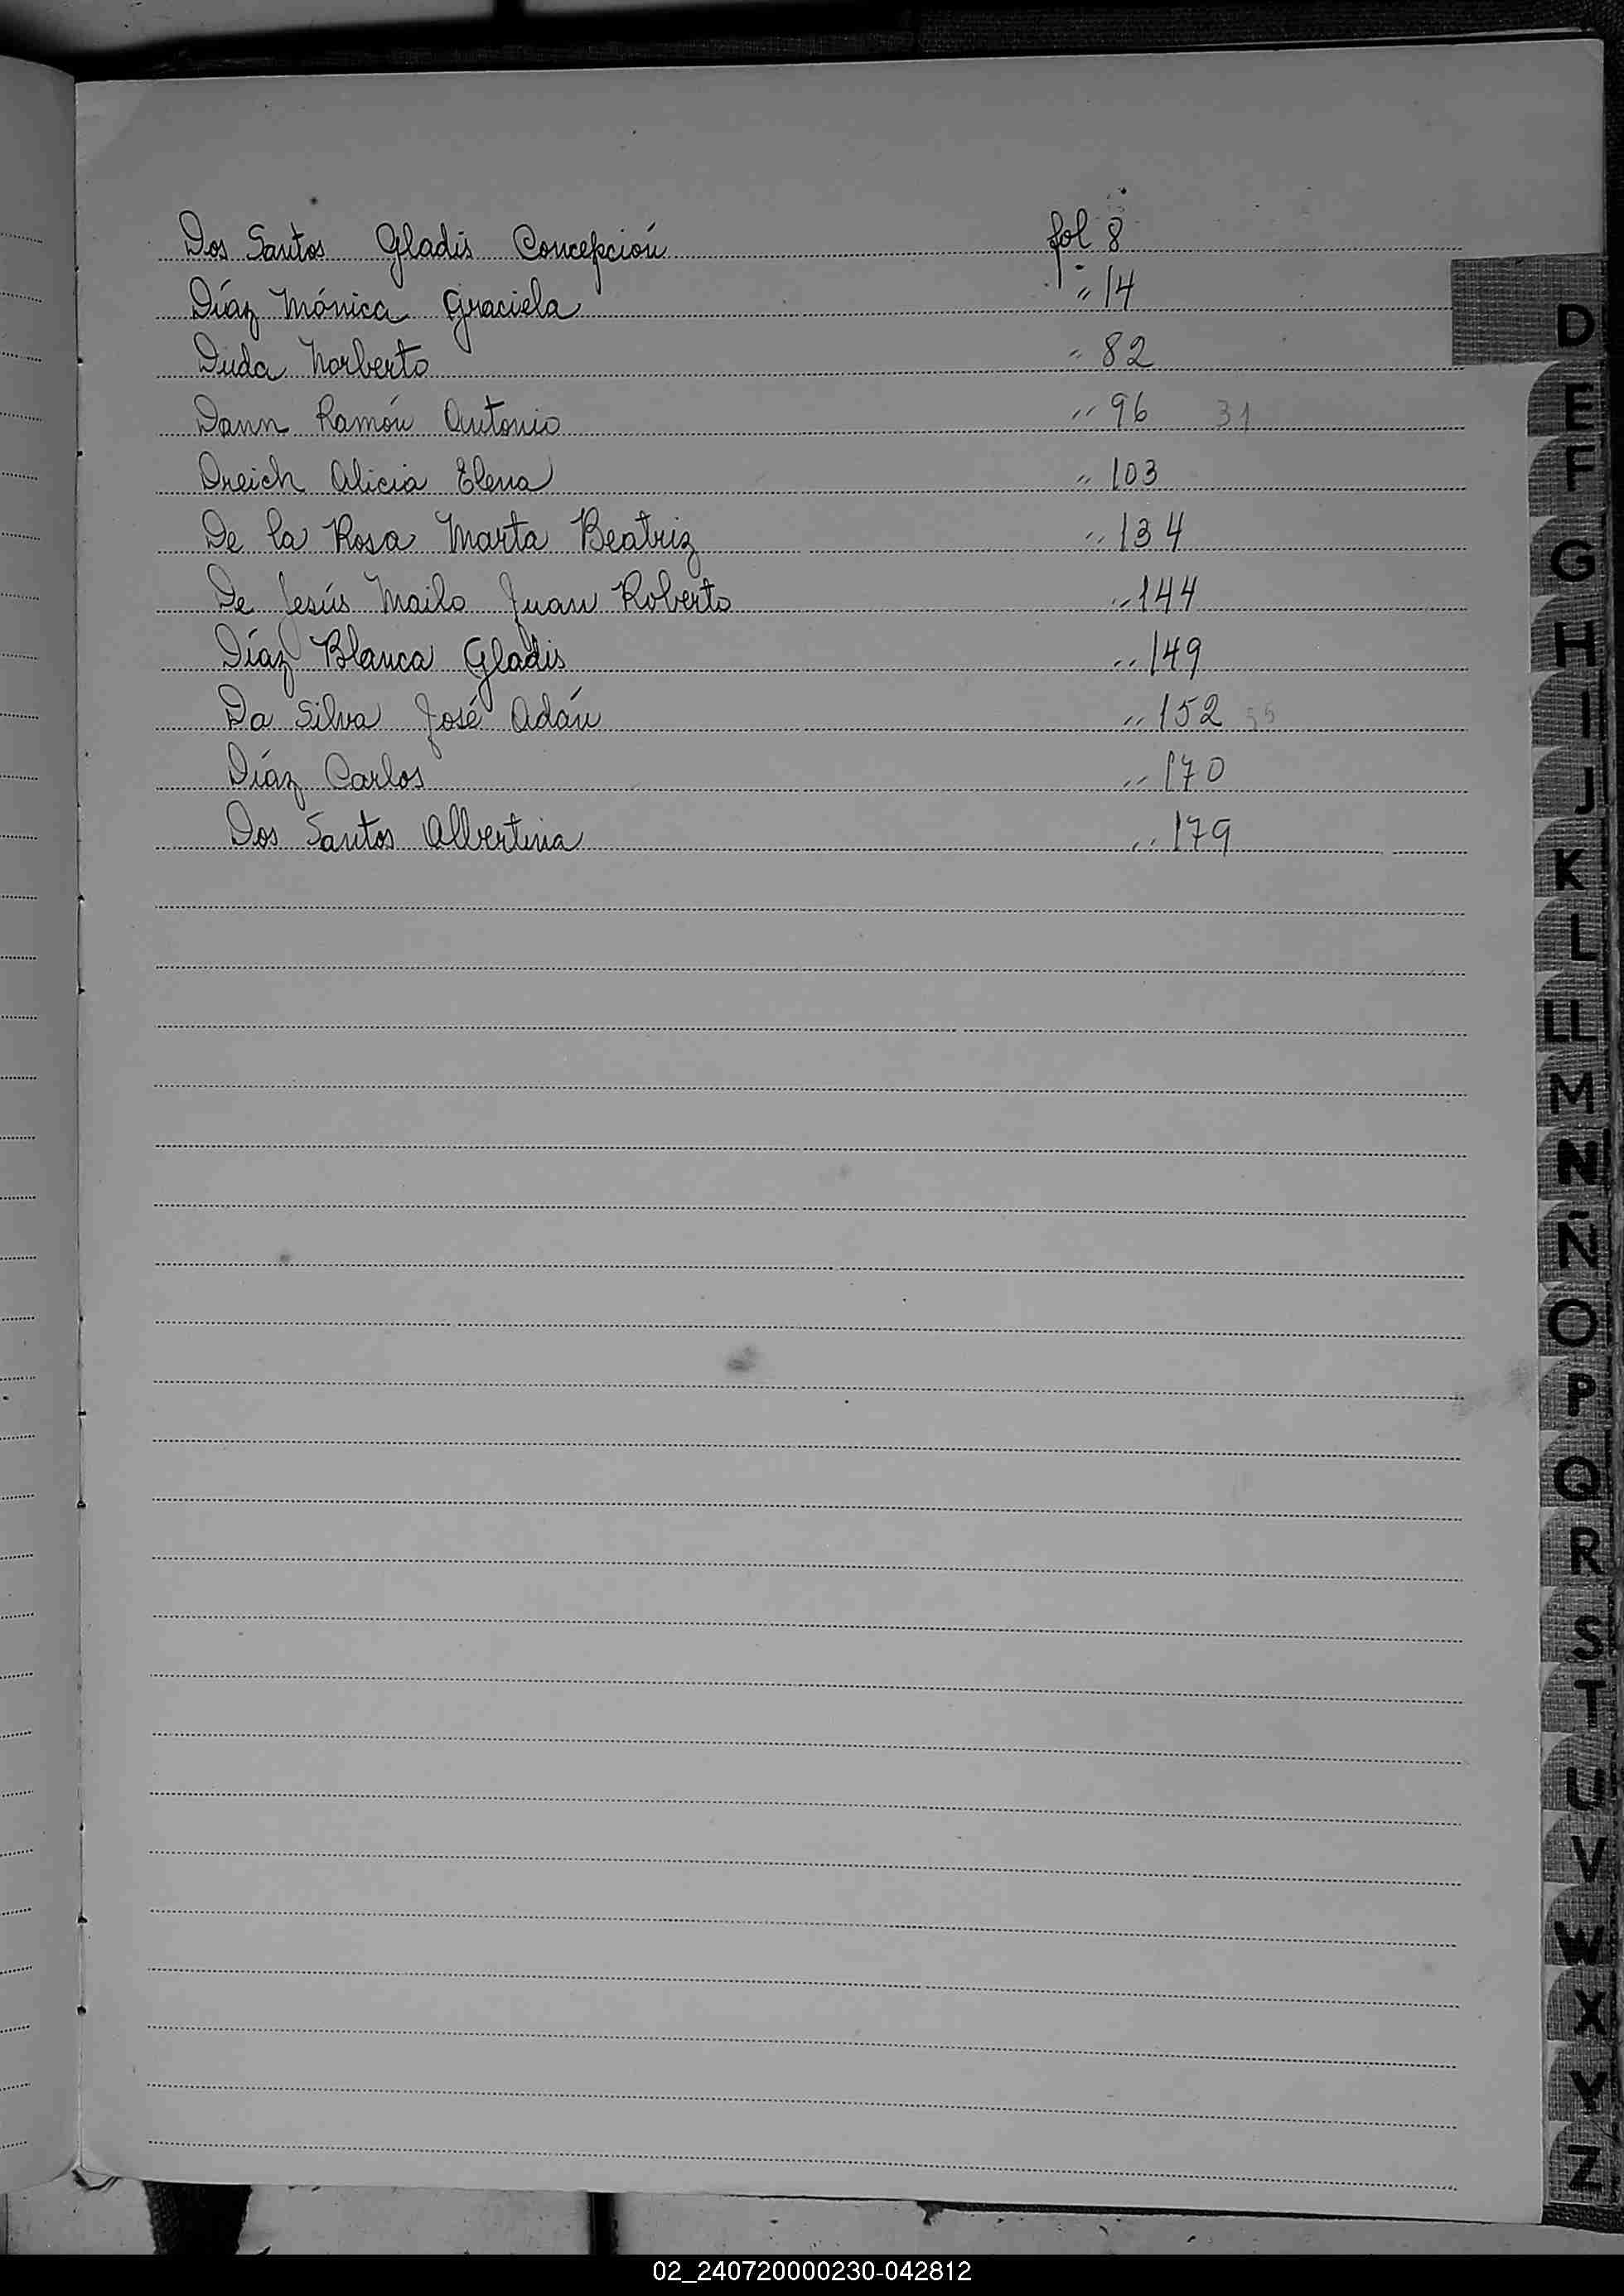 Dos Santos Gladis Concepción fol 8
Díaz Mónica Graciela " 14
Duda Norberto " 82
Dann Ramón Antonio " 96 31
Dreich Alicia Elena " 103
De la Rosa Marta Beatriz " 134
De Jesús Mailo Juan Roberto " 144
Díaz Blanca Gladis " 149
Da Silva José Adán " 152
Díaz Carlos " 170
Dos Santos Albertina " 179
D
E
F
G
H
I
J
K
L
LL
M
N
Ñ
O
P
Q
R
S
T
U
V
W
X
Y
Z
02_240720000230-042812